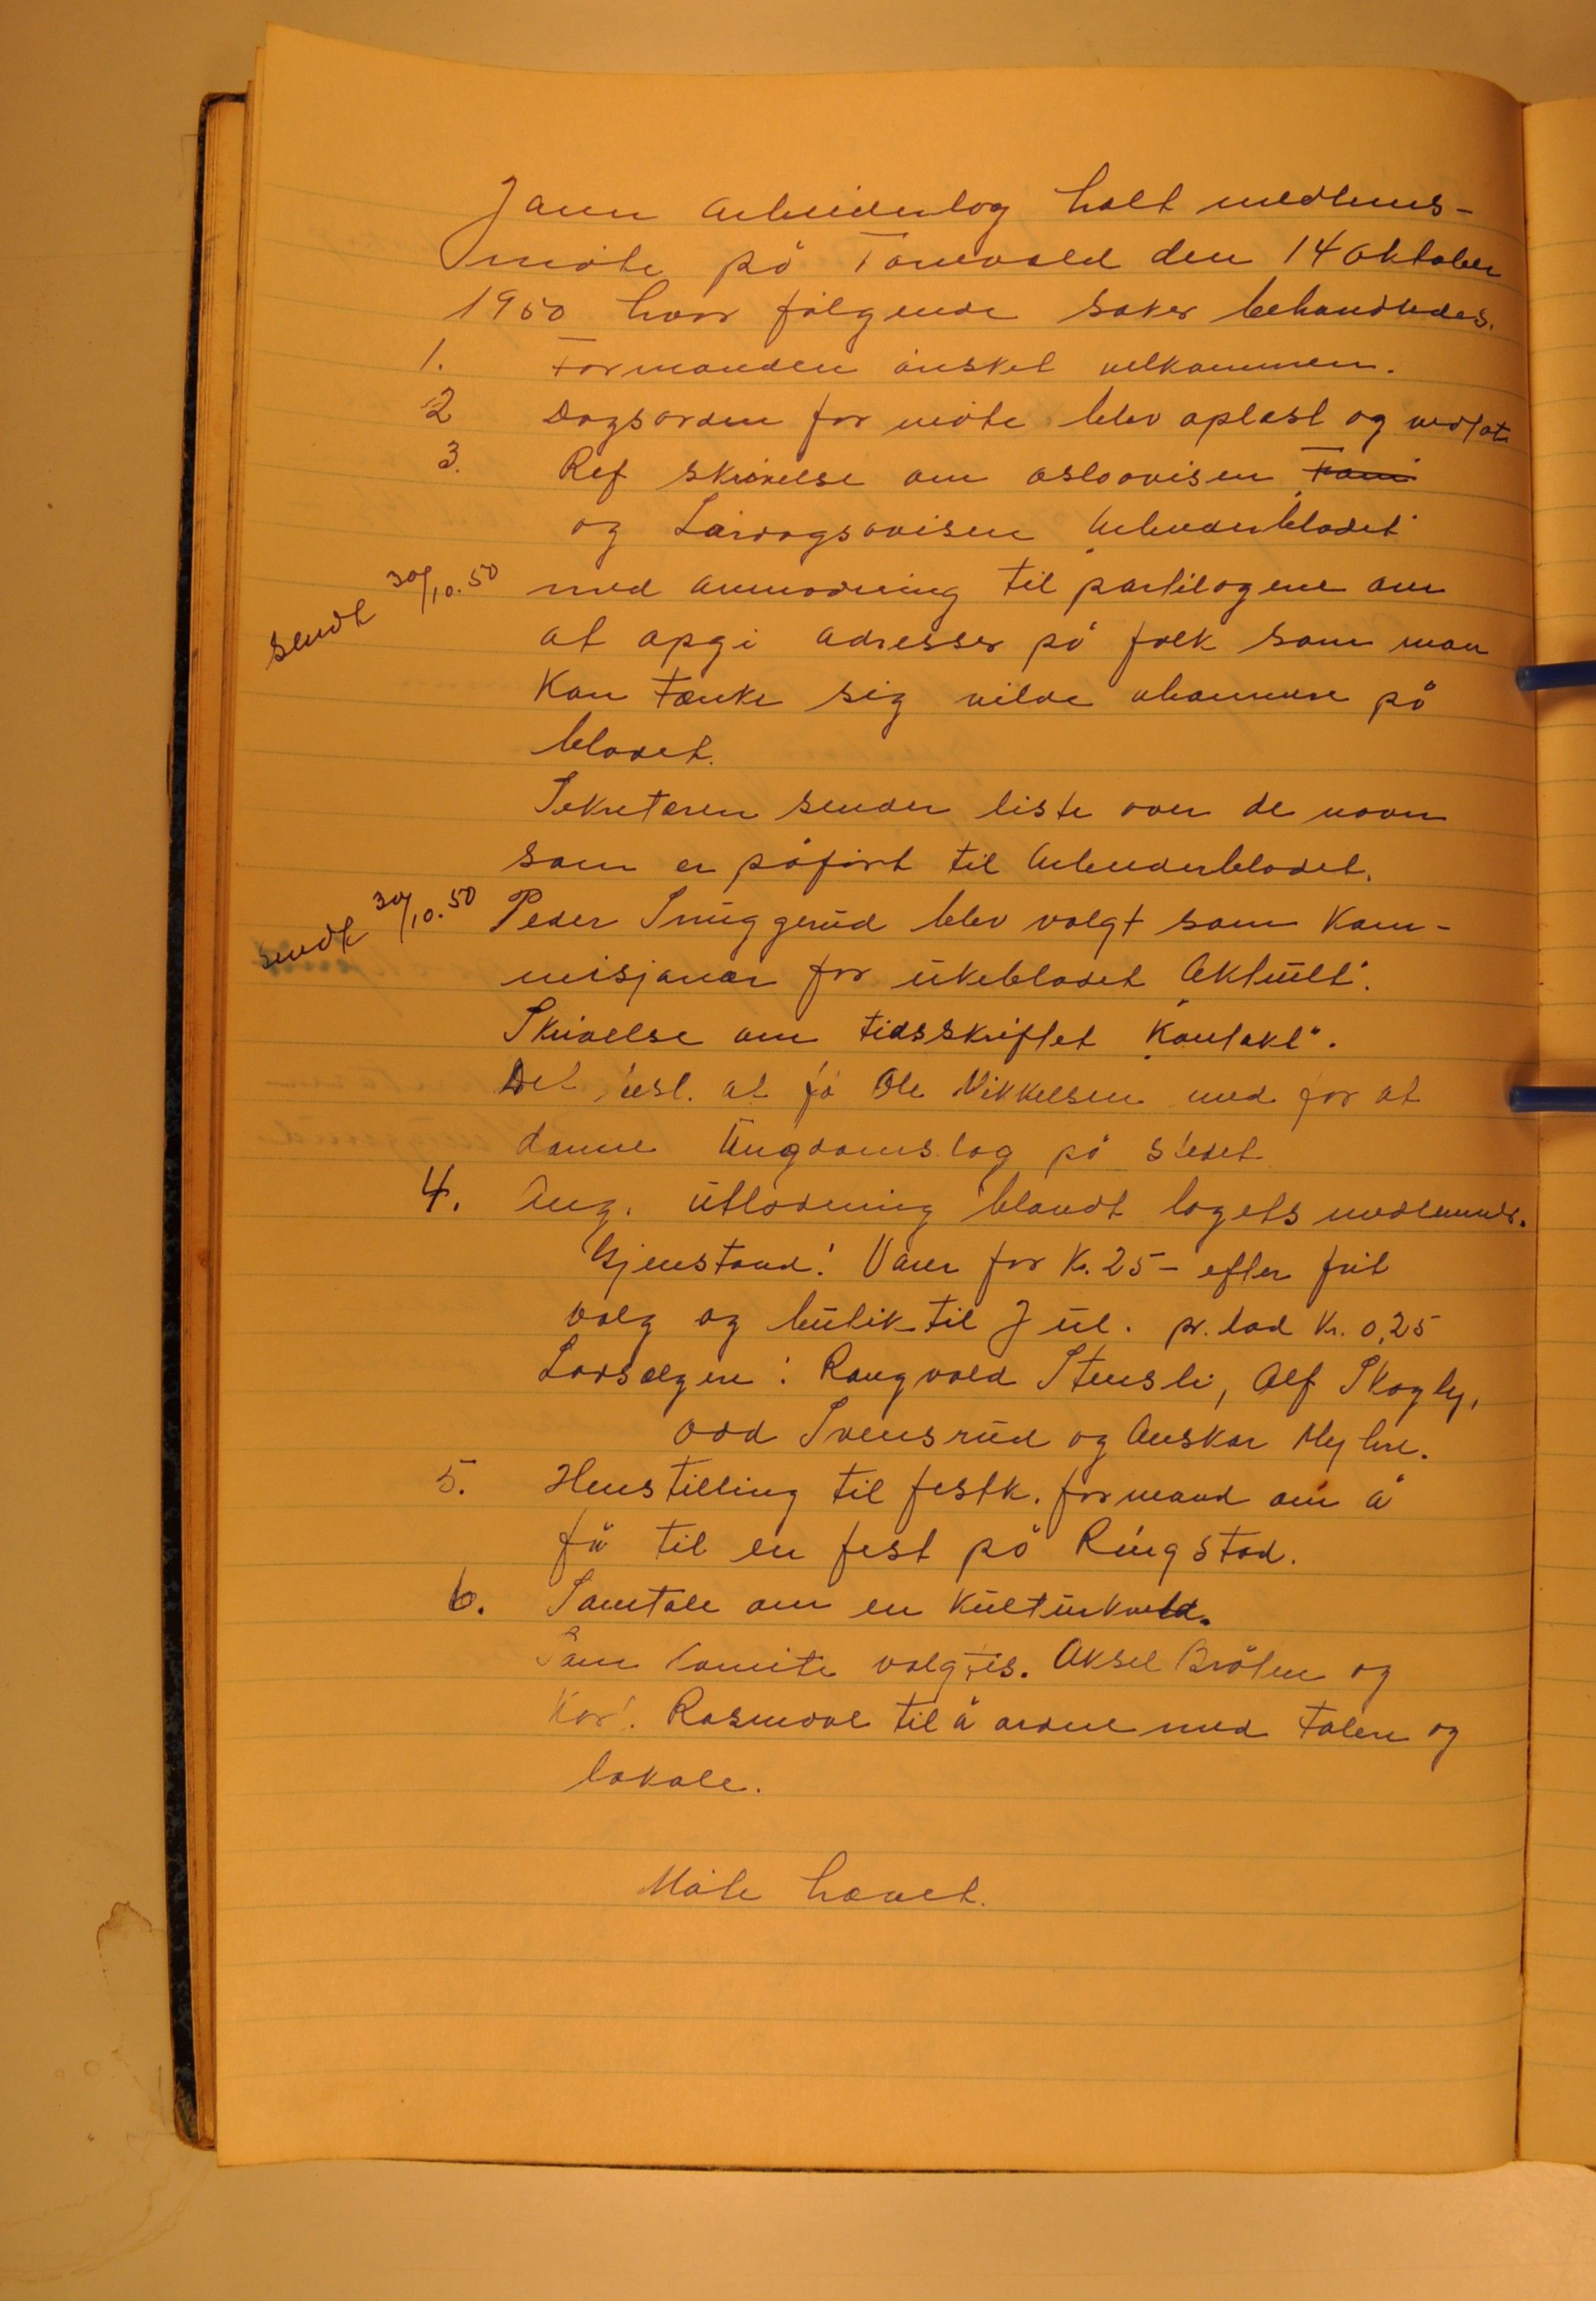 Jaren Arbeiderlag holt medlems-
møte på Tonevold den 14 oktober
1950 hvor følgende saker behandledes.
1. Formanden ønsket velkommen.
2 Dagsorden for møte blev oplæst og vedtat
3. Ref skrivelse om osloavisen
og Lørdagsavisen "Arbeiderbladet"
sendt 30/10.50 med anmodning til partilagene om
at opgi adresser på folk som man
kan tænke sig vilde abonnere på
bladet.
Sekretæren sender liste over de navn
som er påført til Arbeiderbladet.
sendt 30/10.50 Peder Snuggerud blev valgt som kom-
misjonær for ukebladet Aktuelt".
Skrivelse om tidsskriftet "Kontakt".
Det besl. at få Ole Mikkelsen med for at
danne Ungdomslag på stedet
4. Ang. utlodning blandt lagets medlemmer.
Gjenstand: Varer for Kr. 25- efter frit
valg og butik til Jul. pr. lod Kr. 0,25
Lodsælgere: Rangvald Stensli, Alf Skogly,
Odd Svensrud og Anskar Myhre.
5. Henstilling til festk. formand om å
få til en fest på Ringstad.
6. Samtale om en kulturkveld.
Som komite valgtes. Aksel Bråten og
Rasmove til å ordne med taler og
lokale.
Møte hævet.